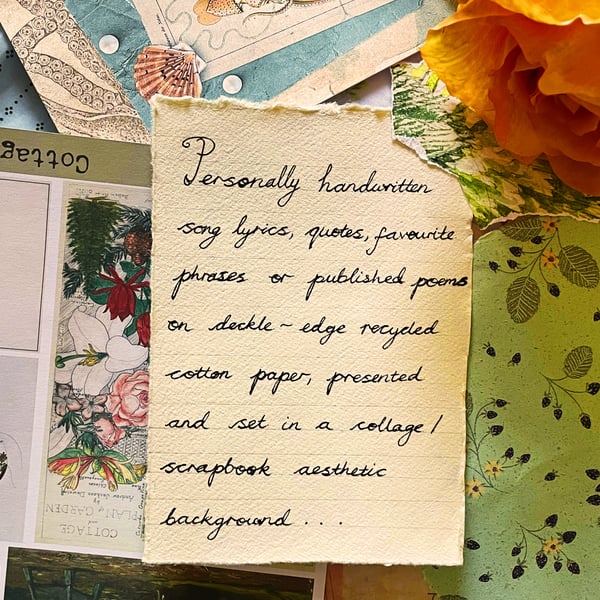 Personally handwritten
song lyrics, quotes, favourite
phrases or published poems
on deckle ~ edge recycled
cotton paper, presented
and set in a collage /
scrapbook aesthetic
background . . .
Cottag
COTTAGE
and
PLAN of GARDEN
by
Andrew Jackson Downing